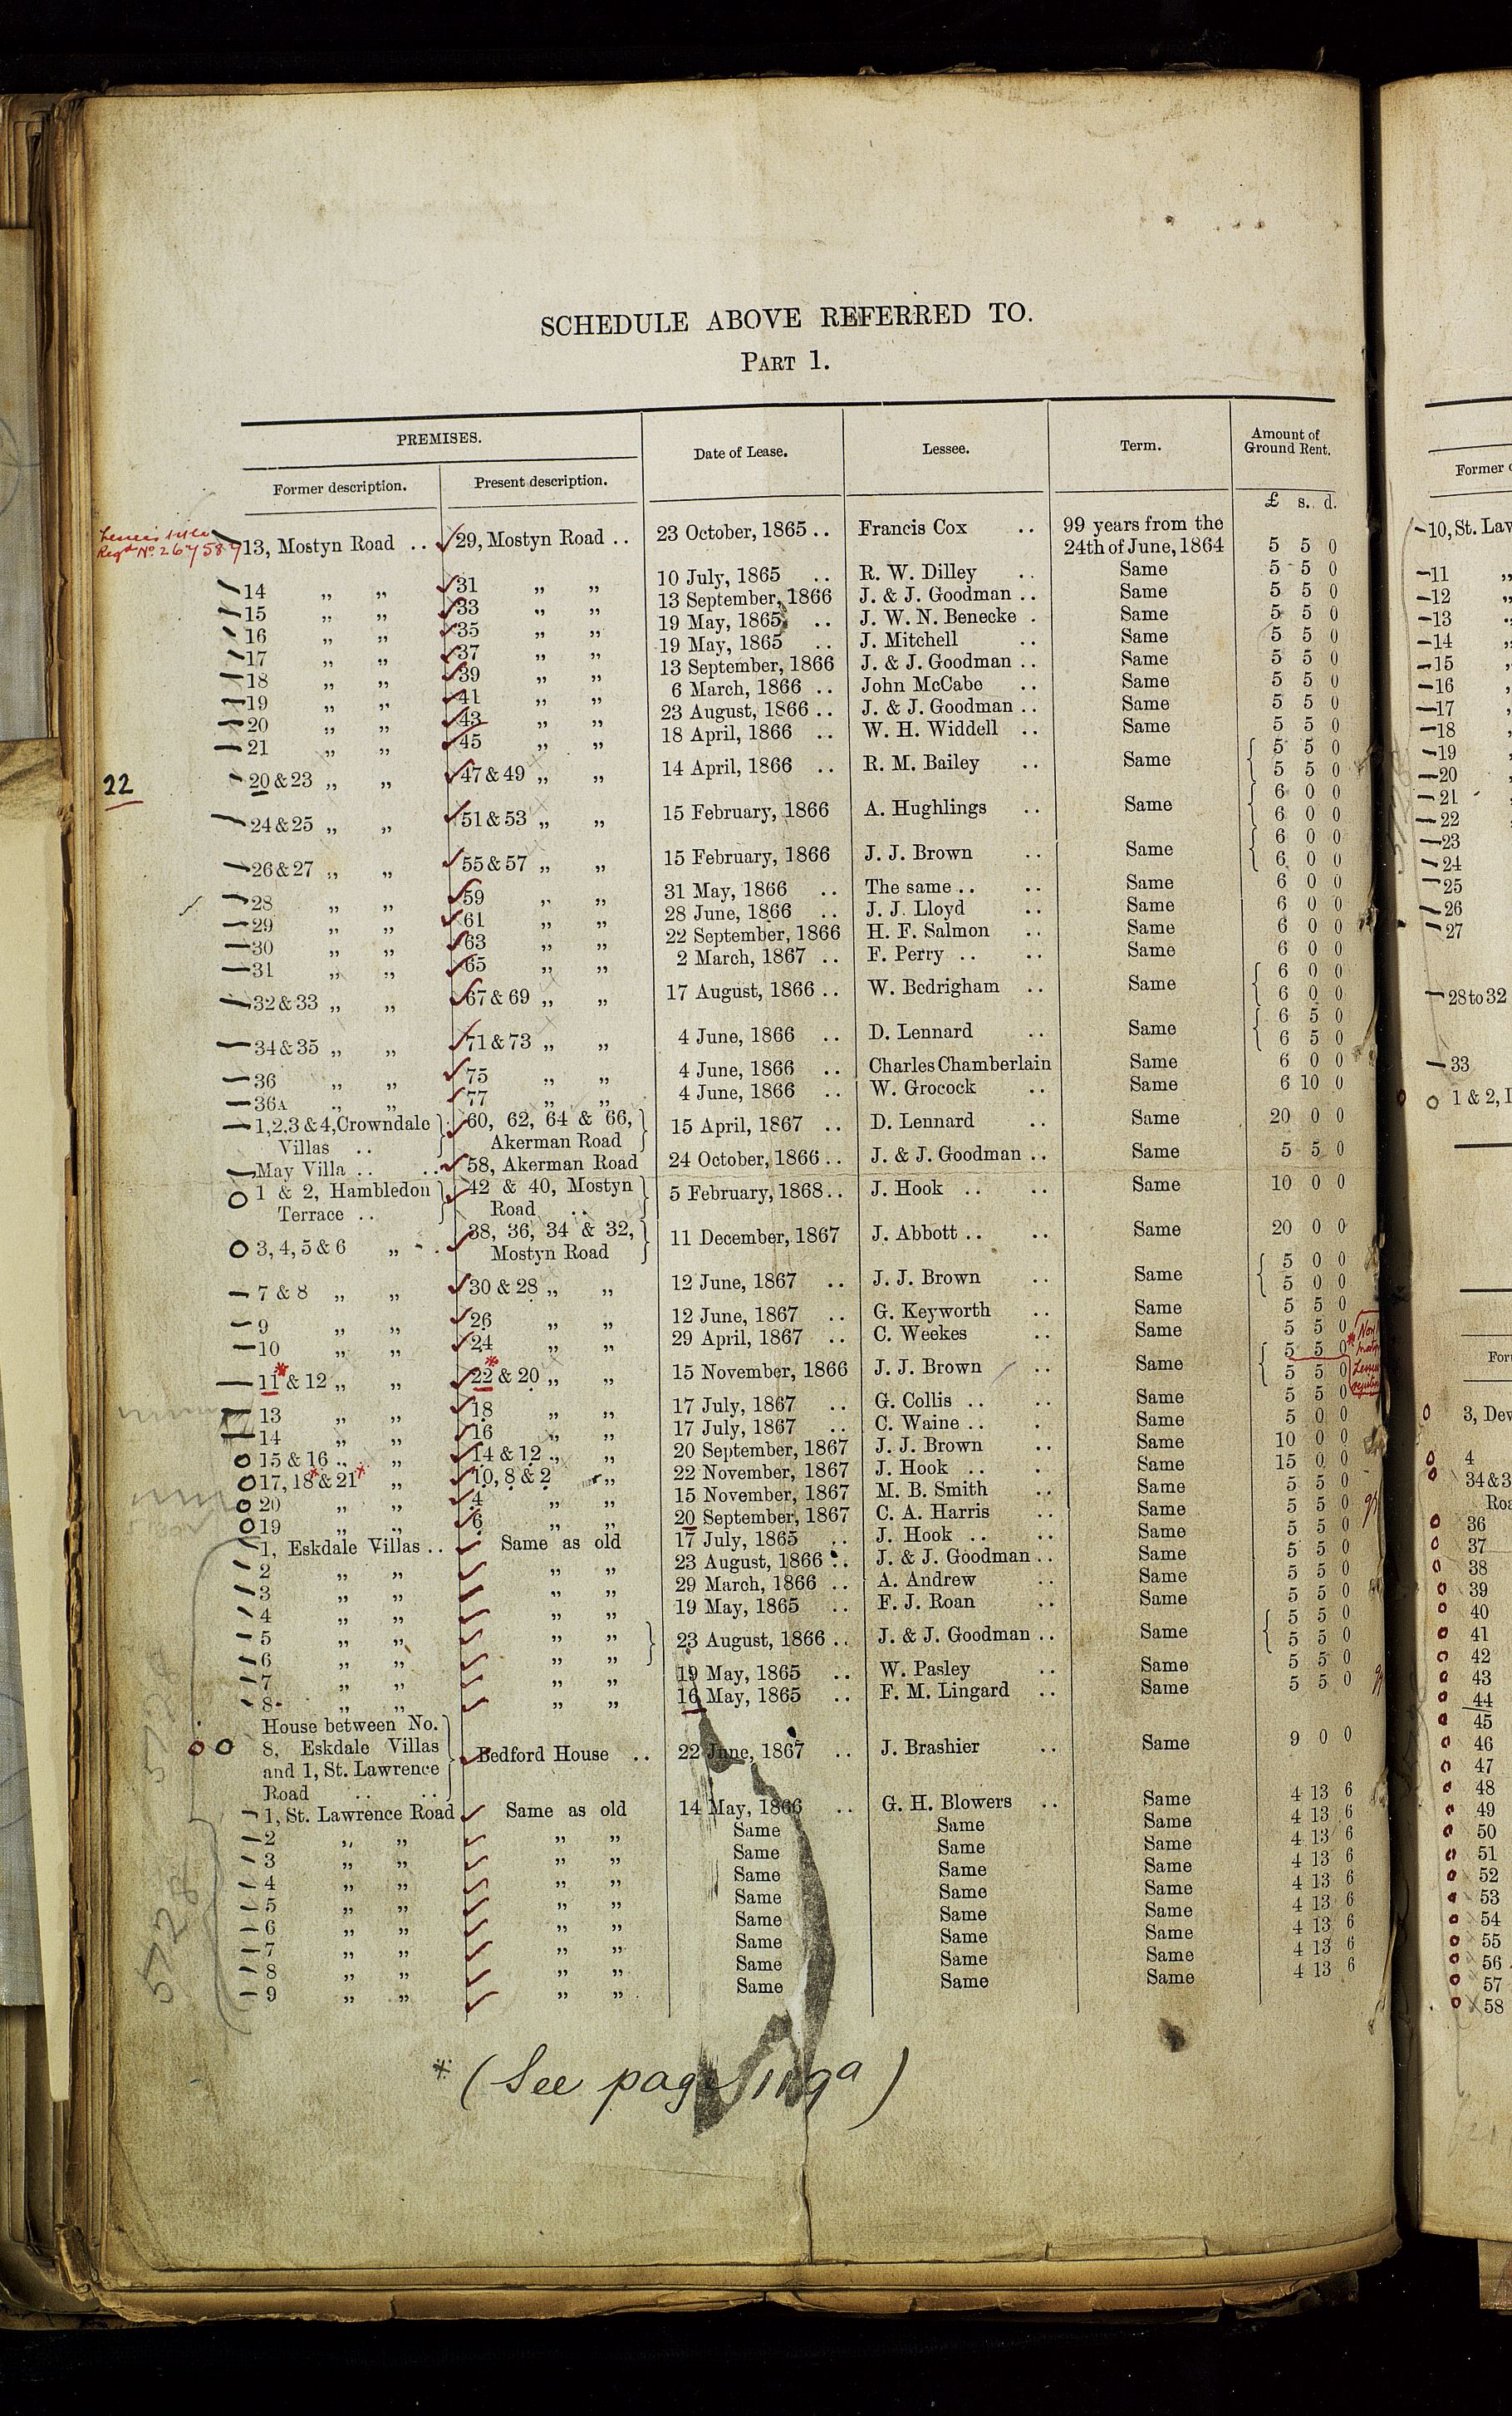 SCHEDULE ABOVE REFERRED TO.
PART 1.
PREMISES. Date of Lease. Lessee. Term. Amount of Ground Rent.
Former description. Present description.
£ s. d.
13, Mostyn Road .. 29, Mostyn Road .. 23 October, 1865 .. Francis Cox .. 99 years from the
Regd No. 267587 24th of June, 1864 5 5 0
14 „ „ 31 „ „ 10 July, 1865 .. R. W. Dilley .. Same 5 5 0
15 „ „ 33 „ „ 13 September, 1866 J. & J. Goodman .. Same 5 5 0
16 „ „ 35 „ „ 19 May, 1865 .. J. W. N. Benecke . Same 5 5 0
17 „ „ 37 „ „ 19 May, 1865 .. J. Mitchell .. Same 5 5 0
18 „ „ 39 „ „ 13 September, 1866 J. & J. Goodman .. Same 5 5 0
19 „ „ 41 „ „ 6 March, 1866 .. John McCabe .. Same 5 5 0
20 „ „ 43 „ „ 23 August, 1866 .. J. & J. Goodman .. Same 5 5 0
21 „ „ 45 „ „ 18 April, 1866 .. W. H. Widdell .. Same 5 5 0
22 20 & 23 „ „ 47 & 49 „ „ 14 April, 1866 .. R. M. Bailey .. Same { 5 5 0
5 5 0
24 & 25 „ „ 51 & 53 „ „ 15 February, 1866 A. Hughlings .. Same { 6 0 0
6 0 0
26 & 27 „ „ 55 & 57 „ „ 15 February, 1866 J. J. Brown .. Same { 6 0 0
6 0 0
28 „ „ 59 „ „ 31 May, 1866 .. The same .. .. Same 6 0 0
29 „ „ 61 „ „ 28 June, 1866 .. J. J. Lloyd .. Same 6 0 0
30 „ „ 63 „ „ 22 September, 1866 H. F. Salmon .. Same 6 0 0
31 „ „ 65 „ „ 2 March, 1867 .. F. Perry .. .. Same 6 0 0
32 & 33 „ „ 67 & 69 „ „ 17 August, 1866 .. W. Bedrigham .. Same { 6 0 0
6 0 0
34 & 35 „ „ 71 & 73 „ „ 4 June, 1866 .. D. Lennard .. Same { 6 5 0
6 5 0
36 „ „ 75 „ „ 4 June, 1866 .. Charles Chamberlain Same 6 0 0
36A „ „ 77 „ „ 4 June, 1866 .. W. Grocock .. Same 6 10 0
1, 2, 3 & 4, Crowndale } 60, 62, 64 & 66, } 15 April, 1867 .. D. Lennard .. Same 20 0 0
Villas .. Akerman Road
May Villa .. .. 58, Akerman Road 24 October, 1866 .. J. & J. Goodman .. Same 5 5 0
1 & 2, Hambledon } 42 & 40, Mostyn } 5 February, 1868 .. J. Hook .. .. Same 10 0 0
Terrace .. Road ..
3, 4, 5 & 6 „ .. 38, 36, 34 & 32, } 11 December, 1867 J. Abbott .. .. Same 20 0 0
Mostyn Road
7 & 8 „ „ 30 & 28 „ „ 12 June, 1867 .. J. J. Brown .. Same { 5 0 0
5 0 0
9 „ „ 26 „ „ 12 June, 1867 .. G. Keyworth .. Same 5 5 0
10 „ „ 24 „ „ 29 April, 1867 .. C. Weekes .. Same 5 5 0
11* & 12 „ „ 22* & 20 „ „ 15 November, 1866 J. J. Brown .. Same { 5 5 0 *
5 5 0
13 „ „ 18 „ „ 17 July, 1867 .. G. Collis .. .. Same 5 5 0
14 „ „ 16 „ „ 17 July, 1867 .. C. Waine .. . Same 5 0 0
15 & 16 .. „ 14 & 12 „ „ 20 September, 1867 J. J. Brown .. Same 10 0 0
17, 18* & 21* „ 10, 8 & 2 „ 22 November, 1867 J. Hook .. . Same 15 0 0
20 „ „ 4 „ „ 15 November, 1867 M. B. Smith .. Same 5 5 0
19 „ „ 6 „ „ 20 September, 1867 C. A. Harris .. Same 5 5 0
1, Eskdale Villas .. Same as old 17 July, 1865 .. J. Hook .. .. Same 5 5 0
2 „ „ „ „ 23 August, 1866 .. J. & J. Goodman .. Same 5 5 0
3 „ „ „ „ 29 March, 1866 .. A. Andrew .. Same 5 5 0
4 „ „ „ „ 19 May, 1865 .. F. J. Roan .. Same 5 5 0
5 „ „ „ „ } 23 August, 1866 .. J. & J. Goodman .. Same { 5 5 0
6 „ „ „ „ 5 5 0
7 „ „ „ „ 19 May, 1865 .. W. Pasley .. Same 5 5 0
8 „ „ „ „ 16 May, 1865 .. F. M. Lingard .. Same 5 5 0
House between No.
8, Eskdale Villas } Bedford House .. 22 June, 1867 .. J. Brashier .. Same 9 0 0
and 1, St. Lawrence
Road .. ..
1, St. Lawrence Road Same as old 14 May, 1866 .. G. H. Blowers .. Same 4 13 6
2 „ „ „ „ Same Same Same 4 13 6
3 „ „ „ „ Same Same Same 4 13 6
4 „ „ „ „ Same Same Same 4 13 6
5 „ „ „ „ Same Same Same 4 13 6
6 „ „ „ „ Same Same Same 4 13 6
7 „ „ „ „ Same Same Same 4 13 6
8 „ „ „ „ Same Same Same 4 13 6
9 „ „ „ „ Same Same Same 4 13 6
5728
* (See page 119a)
Former
10, St. Law
11
12
13
14
15
16
17
18
19
20
21
22
23
24
25
26
27
28 to 32
33
1 & 2,
For
3, Dev
4
34 & 3
Roa
36
37
38
39
40
41
42
43
44
45
46
47
48
49
50
51
52
53
54
55
56
57
58